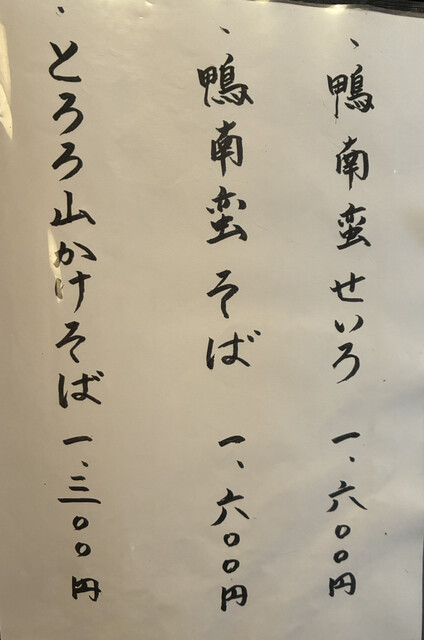 、鴨南蛮せいろ 一、六〇〇円
、鴨南蛮そば 一、六〇〇円
、とろろ山かけそば 一、三〇〇円